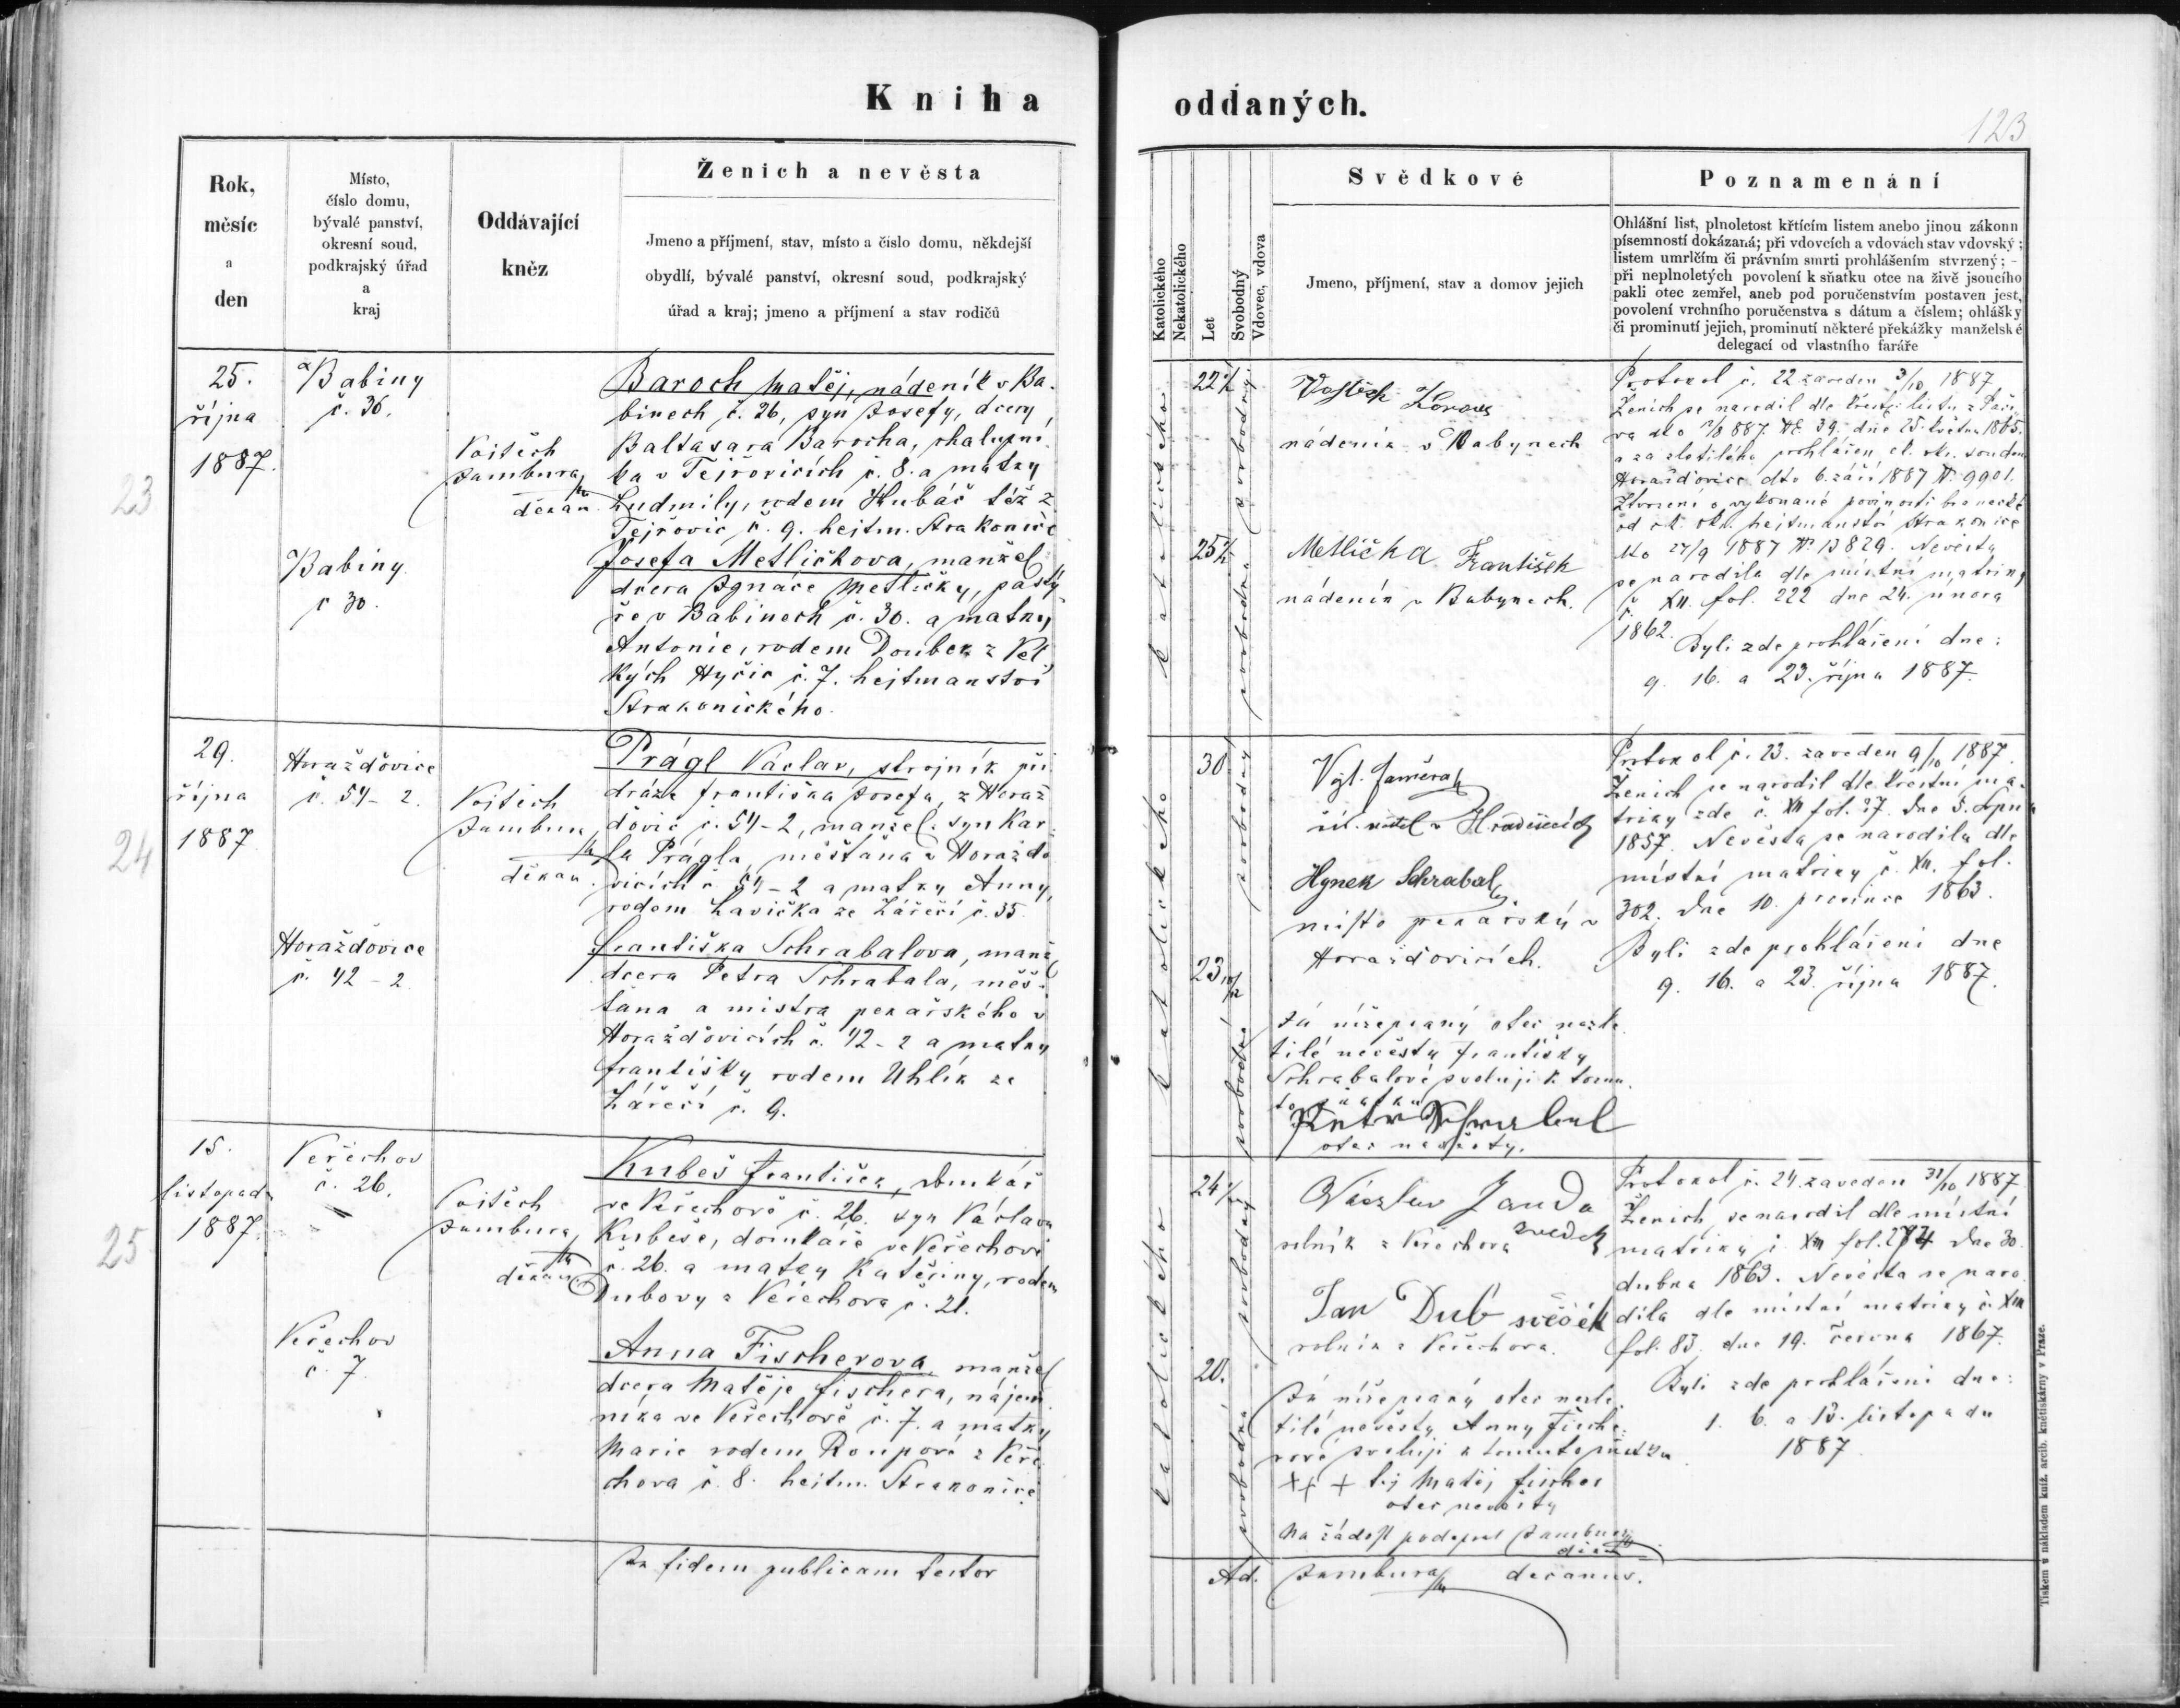 Kniha oddaných.
123
Rok,
měsíc
a
den
Místo,
číslo domu,
bývalé panství,
okresní soud,
podkrajský úřad
a
kraj
Oddávající
kněz
Ženich a nevěsta
Jmeno a příjmení, stav, místo a číslo domu, někdejší
obydlí, bývalé panství, okresní soud, podkrajský
úřad a kraj; jmeno a příjmení a stav rodičů
Katolického
Nekatolického
Let
Svobodný
Vdovec, vdova
Svědkové
Jmeno, příjmení, stav a domov jejich
Poznamenání
Ohlášní list, plnoletost křtícím listem anebo jinou zákonn
písemností dokázaná; při vdovcích a vdovách stav vdovský ;
listem umrlčím či právním smrti prohlášením stvrzený ; -
při neplnoletých povolení k sňatku otce na živě jsoucího
pakli otec zemřel, aneb pod poručenstvím postaven jest,
povolení vrchního poručenstva s dátum a číslem; ohlášky
či prominutí jejich, prominutí některé překážky manželské
delegací od vlastního faráře
23
25.
října
1887.
Babiny
č. 36.
Babiny
č 30.
Vojtěch
Jambura
děkan
Baroch Matěj, nádeník v Ba-
binech č. 26, syn Josefy, dcery
Baltasara Barocha, chalupní
ka v Tejřovicích č. 8. a matky
Ludmily, rodem Hubáč též z
Tejřovic č. 9. hejtm. Strakonice
Josefa Metličkova, manžel
dcera Ignáce Metličky, pastý
ře v Babinech č. 30. a matky
Antonie, rodem Doubek z Vel
kých Hyčic č. 7. hejtmanství
Strakonického.
katolického
22
svobodný
25
svobodná
Vojtěch
nádeník v Babynech
Metlička František
nádeník v Babynech.
Protokol č. 22 zaveden 3/10 1887
Ženich se narodil dle křest. listu z
887 39. dne 25. května 1865.
a za zletilého prohlášen c. k. okr. soudem
Horažďovice dto 6. září 1887 № 9901.
Ztvrzení o vykonané povinosti branecké
od c. k. okr. hejtmanství Strakonice
dto 27/9 1887 № 13829. Nevěsta
se narodila dle místní matriky
č. XII. fol. 222 dne 24. února
1862.
Byli zde prohlášeni dne:
9. 16. a 23. října 1887.
24
29.
října
1887
Horažďovice
č. 54-2.
Horažďovice
č. 42-2
Vojtěch
Jambura,
děkan.
Prágl Václav, strojník při
dráze Františka Josefa, z Horaž
ďovic č. 54-2, manžel. syn Kar
la Prágla, měšťana v Horažďo
vicích č. 54-2 a matky Anny,
rodem Lavička ze Zářečí č. 35
Františka Schrabalova, manž
dcera Petra Schrabala, měš-
ťana a mistra pekařského v
Horažďovicích č. 42-2 a matky
Františky rodem Uhlík ze
Zářečí č. 9.
katolického
30
svobodný
23 10/12
svobodná
Hynek Schrabal
místr pekařský v
Horažďovicích.
Já nížepsaný otec nezle
tilé nevěsty Františky
Schrabalové svoluji k tomu
to sňatku
Petr Schrabal
otec nevěsty.
Protokol č. 23. zaveden 9/10 1887.
Ženich se narodil dle křestní ma-
triky zde č. XII fol. 27. dne 5. srpna
1857. Nevěsta se narodila dle
místní matriky č. XII. fol.
302. dne 10. prosince 1863.
Byli zde prohlášeni dne
9. 16. a 23. října 1887.
25
15.
listopadu
1887.
Veřechov
č. 26.
Veřechov
č. 7
Vojtěch
Jambura,
děkan
Kubeš František, domkář
ve Veřechově č. 26. syn Václava
Kubeše, domkáře ve Veřechově
č. 26. a matky Kateřiny, rodem
Dubovy z Veřechova č. 21.
Anna Fischerova manžel
dcera Matěje Fischera, nájem
níka ve Veřechově č. 7. a matky
Marie rodem Roupové z Veře
chova č. 8. hejtm. Strakonice
katolického
24
svobodný
20.
svobodná
Wáczlaw Janda
rolník z Veřechova swedek
Jan Dub svědek
rolník z Veřechova.
Já nížepsaný otec nezle
tilé nevěsty Anny Fische-
rové svoluji k tomuto sňatku
+ + + tej Matěj Fischer
otec nevěsty
Na žádost podepsal Jambura
děkan
Protokol č. 24. zaveden 31/10 1887
Ženich se narodil dle místní
matriky č. XII fol. 274 dne 30.
dubna 1863. Nevěsta se naro
dila dle místní matriky č. XIII
fol. 83. dne 19. června 1867.
Byli zde prohlášeni dne:
1. 6. a 13. listopadu
1887.
In fidem publicam testor
Ad. Jambura decanus.
Tiskem a nákladem kníž. arcib. knětiskárny v Praze.